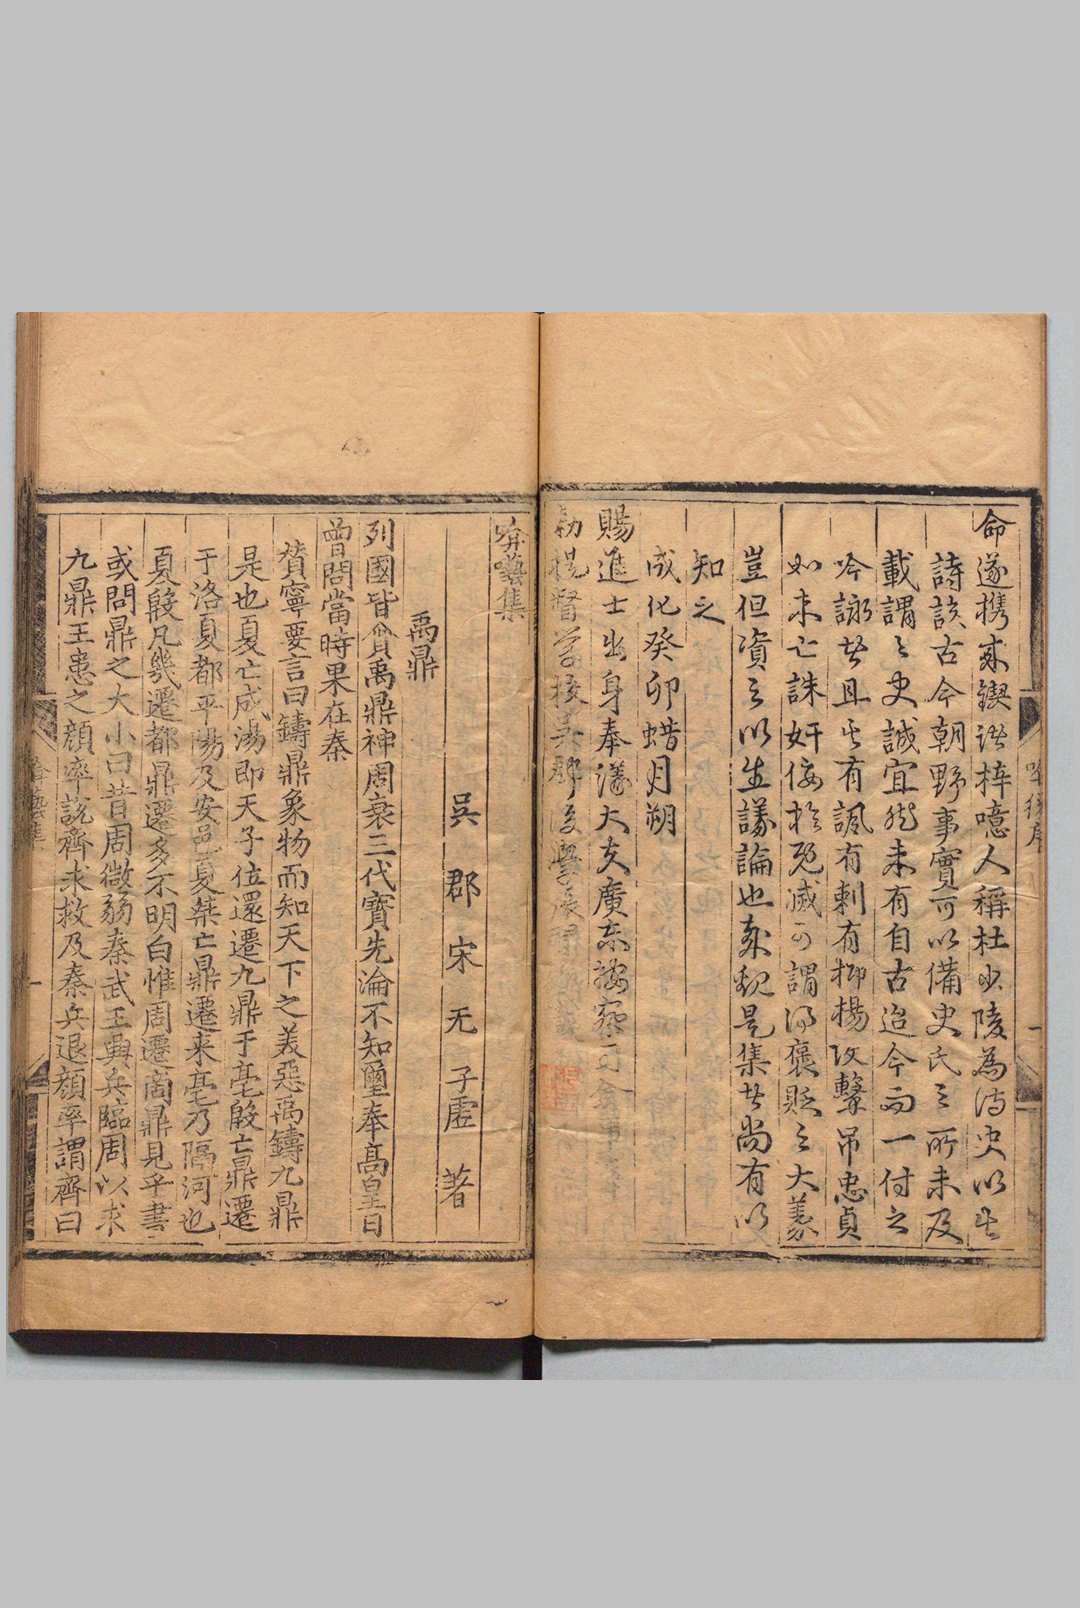 命遂携來鋟諸梓噫人稱杜少陵為詩史以其
詩談古今朝野事實可以備史氏之所未及
載謂之史誠宜然未有自古迨今而一付之
吟詠者且其有諷有刺有抑揚攻擊吊忠貞
如未亡誅奸佞於既滅可謂得褒貶之大義
豈但資之以生議論也哉觀是集者尚有以
知之
成化癸卯蜡月朔
賜進士出身奉議大夫廣東按察司僉事
勑提督學校吳郡後學張
吟後序
啽囈集
吳郡宋无子虛著
禹鼎
列國皆貪禹鼎神周衰三代寶先淪不知璽奉高皇日
曾問當時果在秦
贊寧要言曰鑄鼎象物而知天下之美惡禹鑄九鼎
是也夏亡成湯即天子位還遷九鼎于亳殷亡鼎遷
于洛夏都平陽及安邑夏桀亡鼎遷来亳乃隔河也
夏殷凡幾遷都鼎遷多不明白惟周遷商鼎見乎書
或問鼎之大小曰昔周微弱秦武王興兵臨周以求
九鼎王患之顔率說齊求救及秦兵退顔率謂齊曰
啽囈集
一